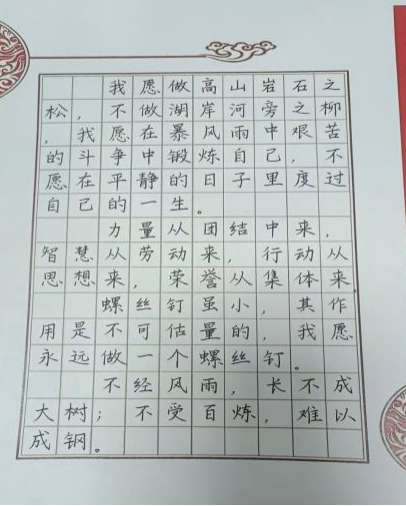 我愿做高山岩石之
松，不做湖岸河旁之柳
，我愿在暴风雨中艰苦
的斗争中锻炼自己，不
愿在平静的日子里度过
自己的一生。
力量从团结中来，
智慧从劳动来，行动从
思想来，荣誉从集体来
螺丝钉虽小，其作
用是不可估量的，我愿
永远做一个螺丝钉。
不经风雨，长不成
大树；不受百炼，难以
成钢。